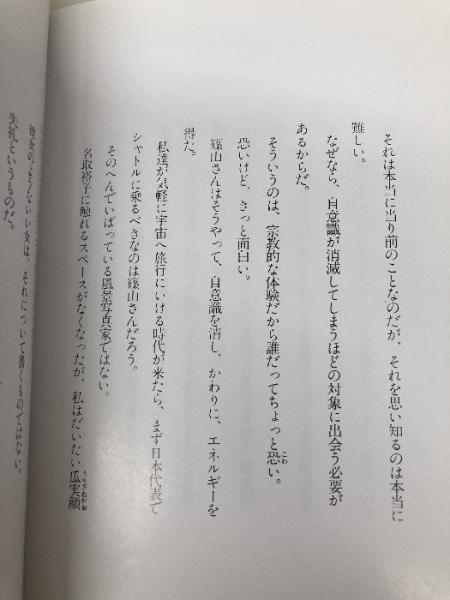 それは本当に当り前のことなのだが、それを思い知るのは本当に
難しい。
なぜなら、自意識が消滅してしまうほどの対象に出会う必要が
あるからだ。
そういうのは、宗教的な体験だから誰だってちょっと恐い。
こわ
恐いけど、きっと面白い。
篠山さんはそうやって、自意識を消し、かわりに、エネルギーを
得た。
私達が気軽に宇宙へ旅行にいける時代が来たら、まず日本代表で
シャトルに乗るべきなのは篠山さんだろう。
そのへんでいばっている風景写真家ではない。
名取裕子に触れるスペースがなくなったが、私はだいたい瓜実顔
うりざねがお
のよくない女は、それについて書くものではない。
失礼というものだ。